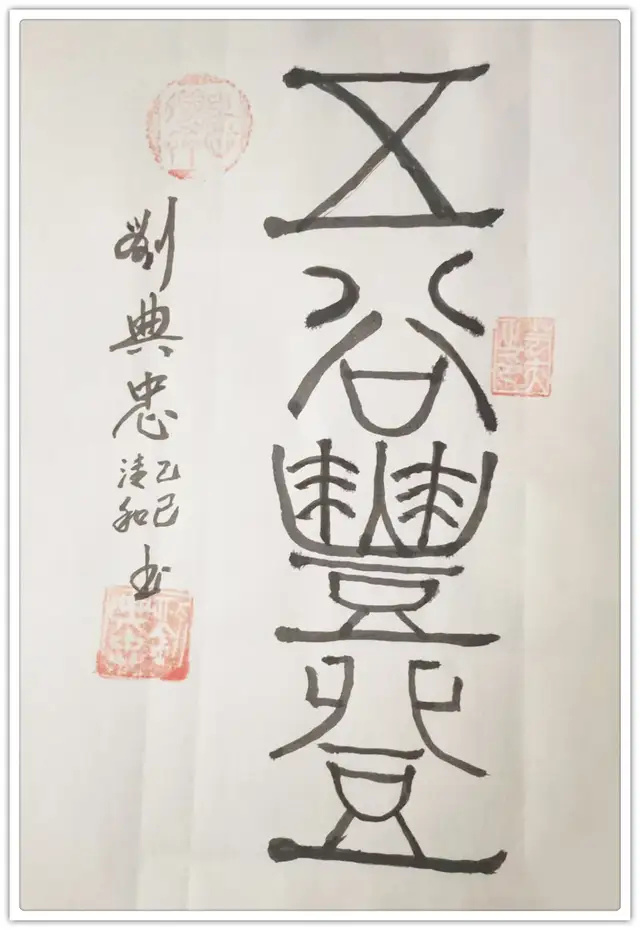 五谷豐登
劉典忠
乙巳
清和
书